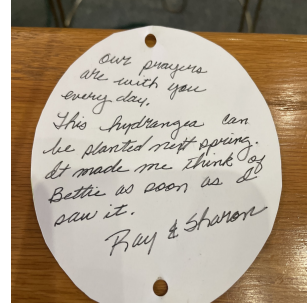 Our prayers
are with you
every day.
This hydrangea can
be planted next spring.
It made me think of
Bettie as soon as I
saw it.
Ray & Sharon